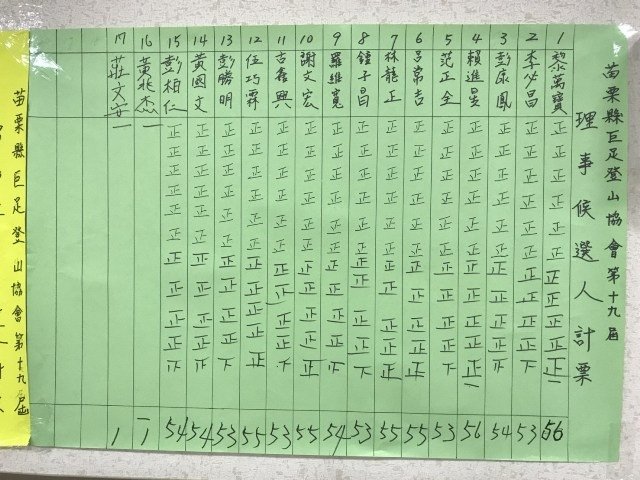 苗栗縣巨足登山協會第十九屆
理事候選人計票
1 黎萬寶 正正正正正正正正正正正一 56
2 李必昌 正正正正正正正正正正下 53
3 彭康鳳 54
4 賴進昱 正正正正正正正正正正正一 56
5 范正全 正正正正正正正正正正下 53
6 呂萬吉 正正正正正正正正正正正 55
7 林龍正 正正正正正正正正正正正 55
8 鍾千昌 正正正正正正正正正正下 53
9 羅維寬 54
10 謝文宏 正正正正正正正正正正正 55
11 古春興 正正正正正正正正正正下 53
12 伍巧霖 正正正正正正正正正正正 55
13 彭勝明 正正正正正正正正正正下 53
14 黃國文 54
15 彭柏仁 54
16 黃兆杰 一 1
17 莊文 一 1
苗栗縣巨足登山協會第十九屆